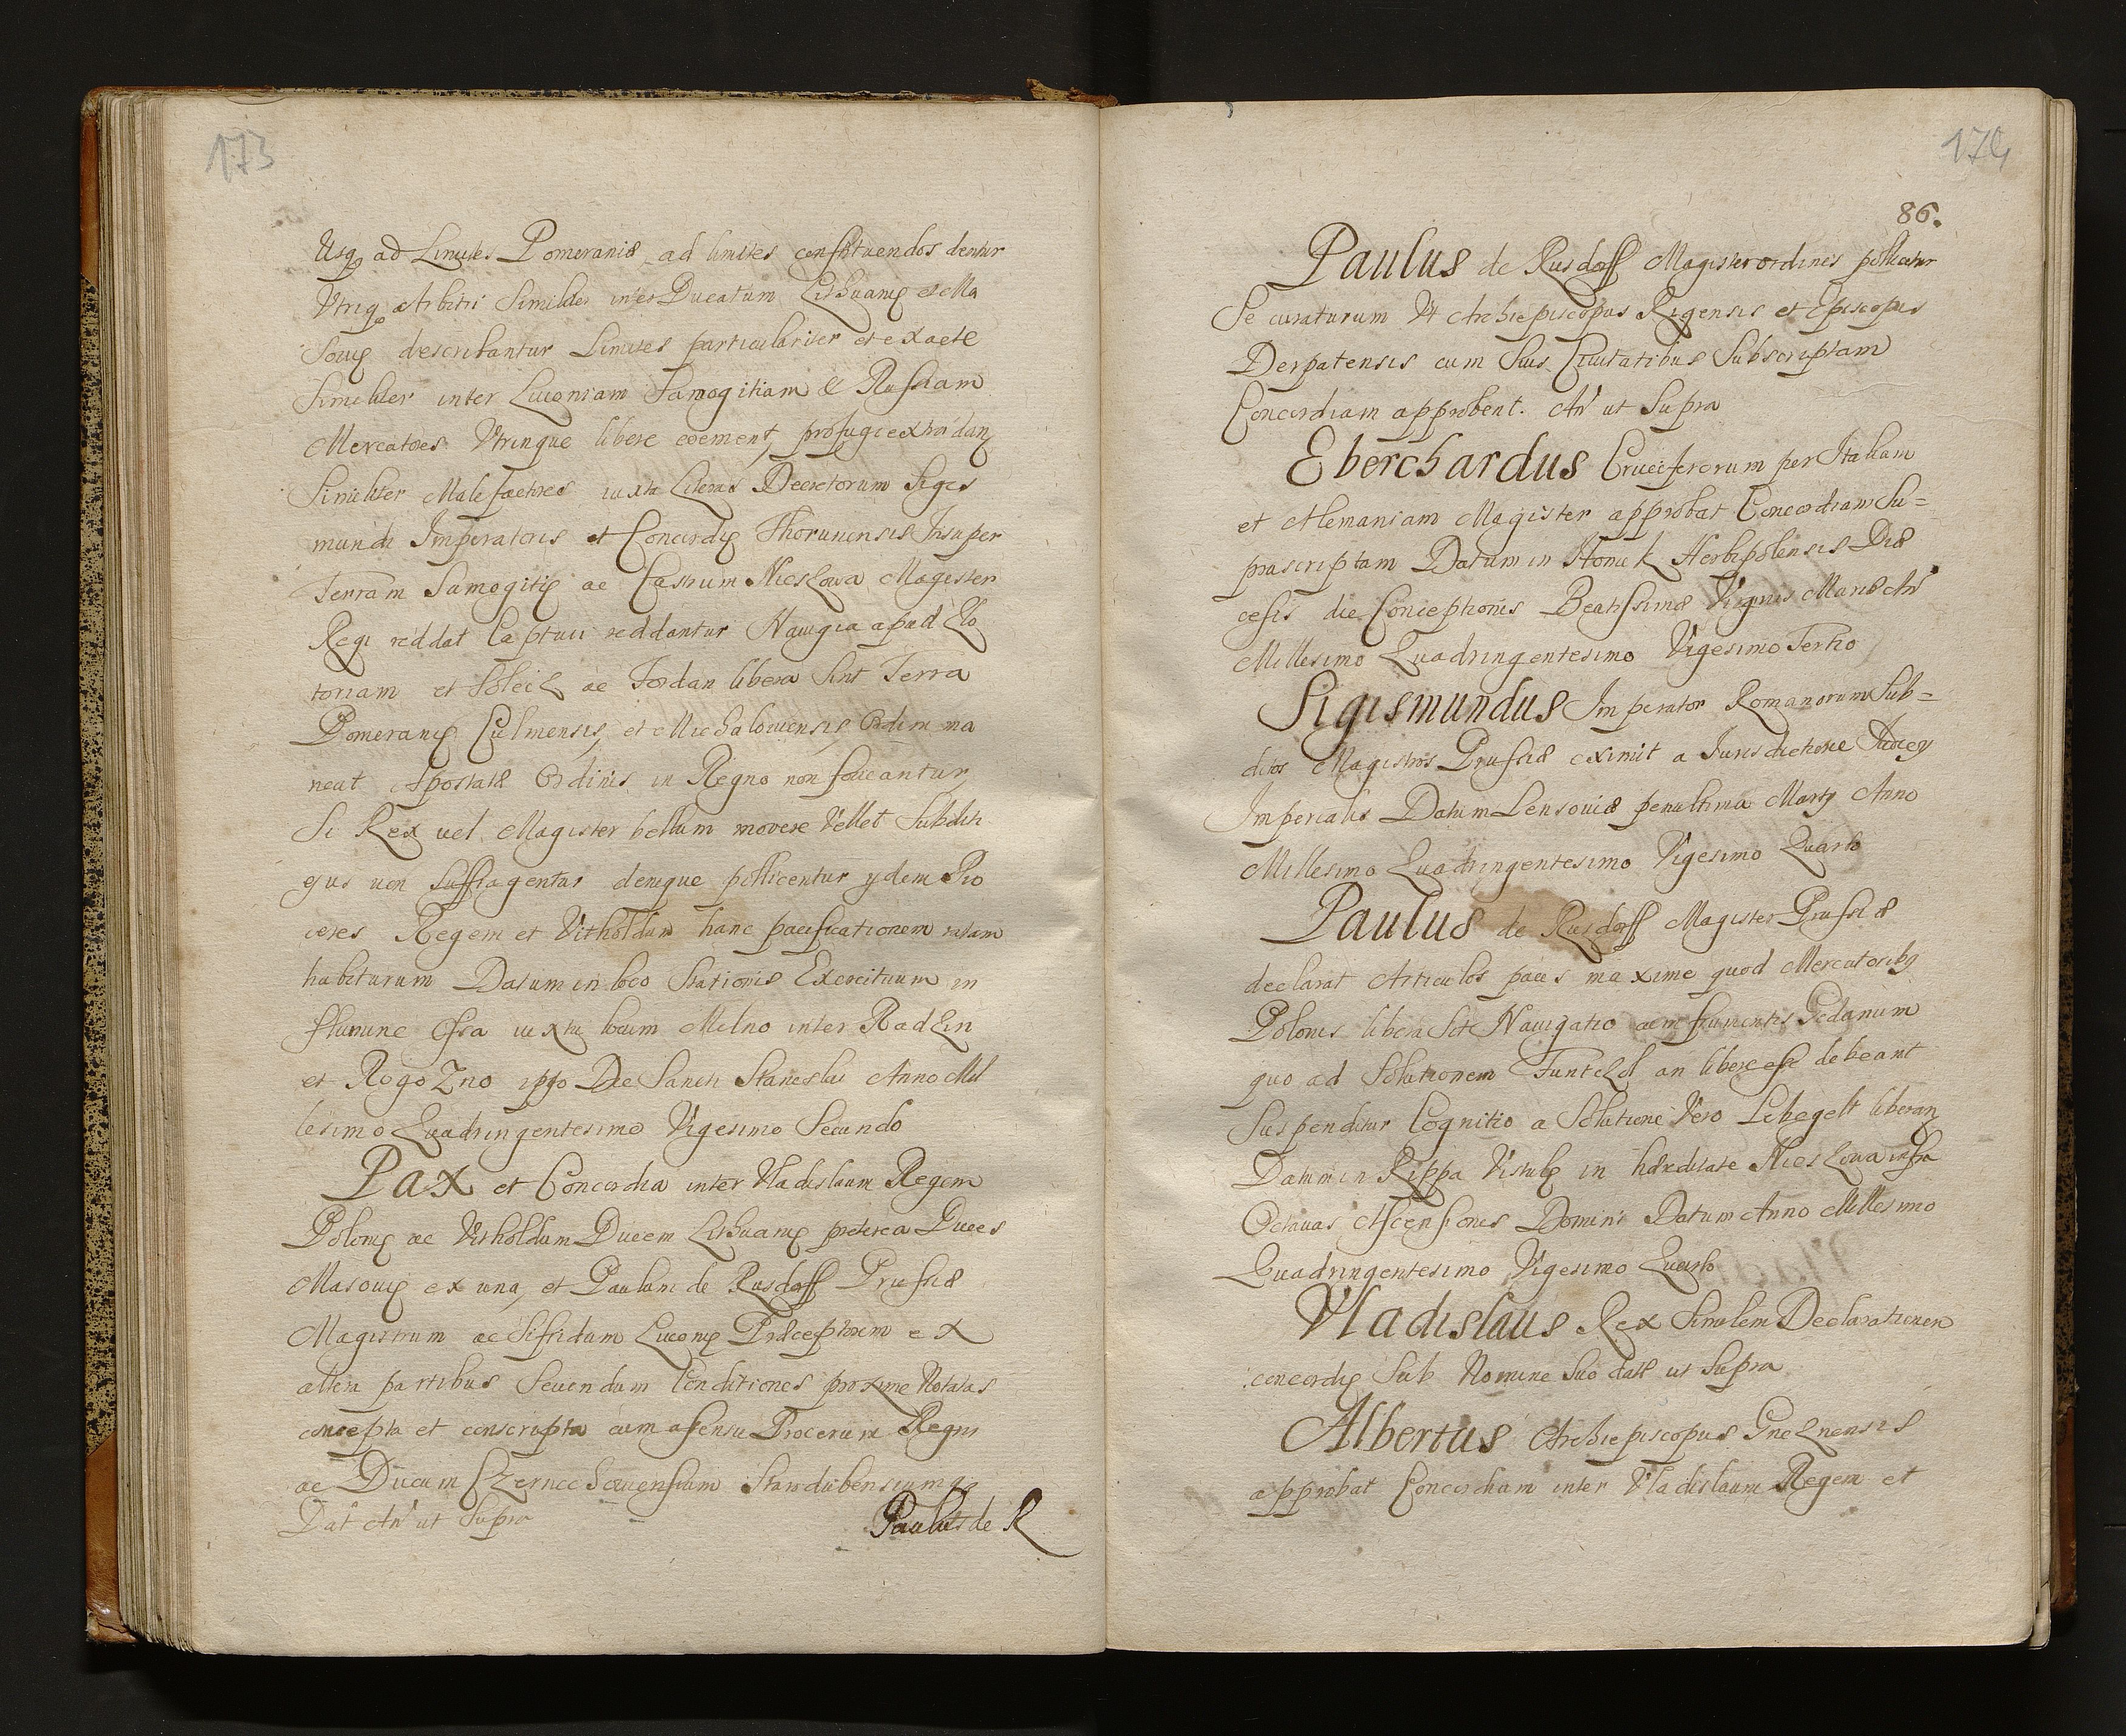 173
Usq, ad Limites Pomeraniæ, ad limites constituendos dentur
Utriq, Arbitri Similiter inter Ducatum Lithuaniæ et Ma
Souiæ describantur Limites particulariter et exacte
Similiter inter Liuoniam Samogitiam & Russiam
Mercatores Utrinque libere coement, profugi extradan
Similiter Malefactores iuxta Literas Decretorum Sigis
mundi Imperatoris et Concordiæ Thorunensis Insuper
Terram Samogitiæ ac Castrum Nieszowa Magister
Regi reddat Captiui reddantur Nauigia apud Zlo
toriam et Soleiz ac Jordan libera Sint Terra
Pomeraniæ Culmensis, et Michalouiensis Ordini ma
neat Apostatæ Ordinis in Regno non foueantur
Si Rex uel Magister bellum movere Vellet Subditi
ejus non Suffragentur denique pollicentur ydem Pro
ceres Regem et Vitholdum hanc pacificationem ratam
habiturum Datum in loco Stationis Exercituum in
flumine Ossa iuxta locum Melno inter Radzin
et Rogozno ipso Die Sancti Stanislai Anno Mil
lesimo Quadringentesimo Vigesimo Secundo
Pax et Concordia inter Vladislaum Regem
Poloniæ ac Vitholdum Ducem Lithuaniæ preterea Duces
Masouiæ ex una, et Paulum de Rusdorff Prussiæ
Magistrum ac Sifridum Liuoniæ Præceptorem ex
altera partibus Secundum Conditiones proxime Notatas
concepta et conscripta cum assensu Procerum Regni
ac Ducum Czerniechouiensium Starodubensium
Dat An ut Supra
Paulus de R
174
86.
Paulus de Rusdorff Magister ordinis pollicetur
Se curaturum Ut Archiepiscopus Rigensis et Episcopus
Derpatensis cum Suis Ciuitatibus Subscriptam
Concordiam approbent. An ut Supra
Eberchardus Cruciferorum per Italiam
et Alemaniam Magister approbat Concordiam Su=
prascriptam Datum in Hornek Herbipolensis Diæ
cesis die Conceptionis Beatissimæ Virginis Mariæ An
Millesimo Quadringentesimo Vigesimo Tertio
Sigismundus Imperator Romanorum Sub=
ditos Magistros Prussiæ eximit a Jurisdictione
Imperialis Datum Lensouiæ penultima Martij Anno
Millesimo Quadringentesimo Vigesimo Quarto
Paulus de Rusdorff Magister Prussiæ
declarat Articulos pacis maxime quod Mercatoribq
Polonis libera Sit Nauigatio cum frumentis Gedanum
quo ad Solutionem Funtczol an libere esse debeant
Suspenditur Cognitio a Solutione Vero Lebegelt liberan
Datum in Rippa Vistulæ in hæreditate Nieszowa infra
Octauas Ascensiones Domini Datum Anno Millesimo
Quadringentesimo Vigesimo Quarto
Vladislaus Rex Similem Declarationem
concordiæ Sub Nomine Suo dat ut Supra
Albertus Archiepiscopus Gneznensis
approbat Concordiam inter Vladislaum Regem et